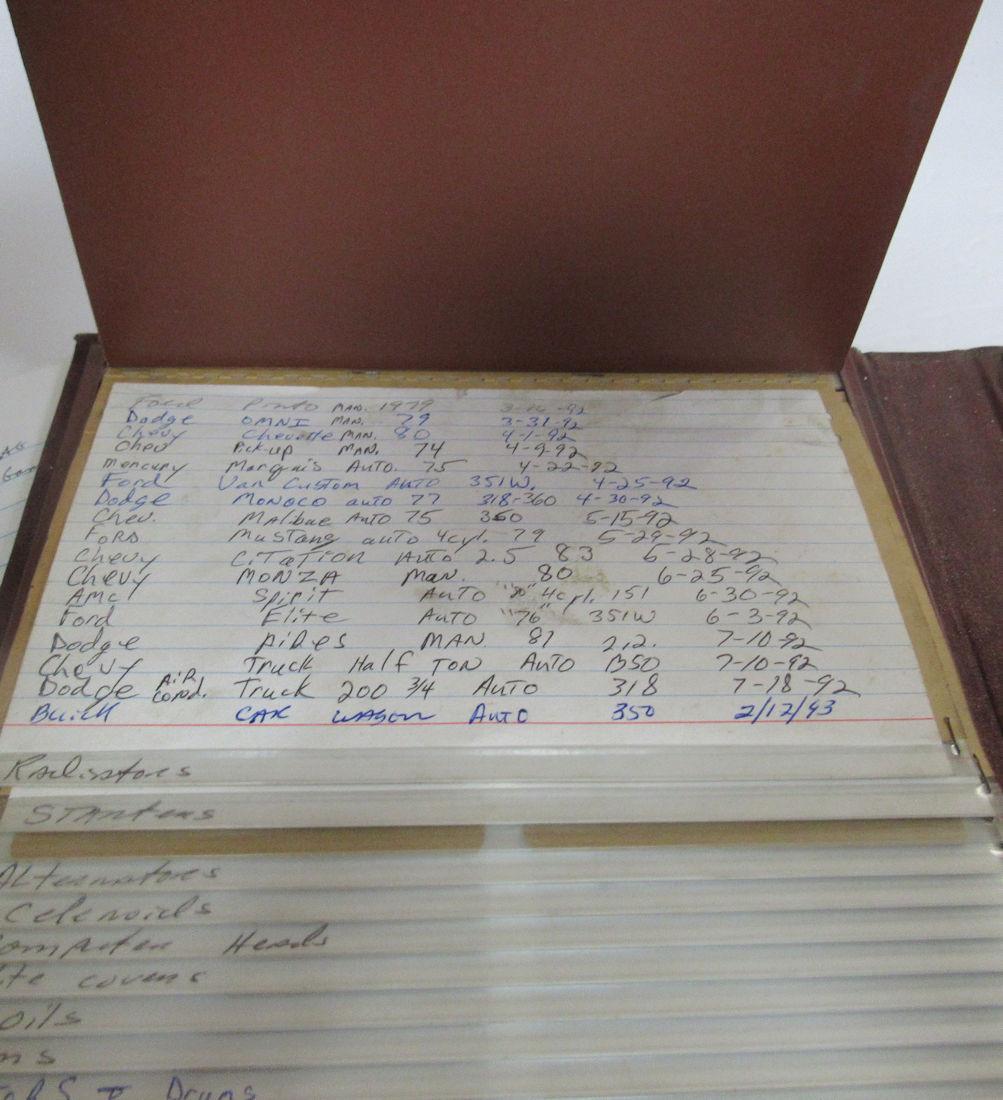 Ford Pinto MAN. 1979 3-16-92
Dodge OMNI MAN. 79 3-31-92
Chevy Chevette MAN. 80 4-1-92
Chev Pick-up MAN. 74 4-9-92
Mercury Marquis AUTO. 75 4-22-92
Ford Van Custom AUTO 351W. 4-25-92
Dodge MONOCO auto 77 318-360 4-30-92
Chev. Malibue Auto 75 350 5-15-92
FORD Mustang auto 4cyl. 79 5-29-92
Chevy CiTATion AUTO 2.5 83 6-28-92
Chevy MONZA Man. 80 6-25-92
AMC Spirit AUTO 4cyl. 151 6-30-92
Ford Elite AUTO "76" 351W 6-3-92
Dodge AiRes MAN 81 2.2. 7-10-92
Chevy Truck Half TON AUTO 350 7-10-92
Dodge AiR Cond. Truck 200 3/4 AUTO 318 7-18-92
Buick CAR WAGON AUTO 350 2/12/93
Radiators
STARters
ALternators
Celenoids
omputer Heads
covers
oils
ns
Drums